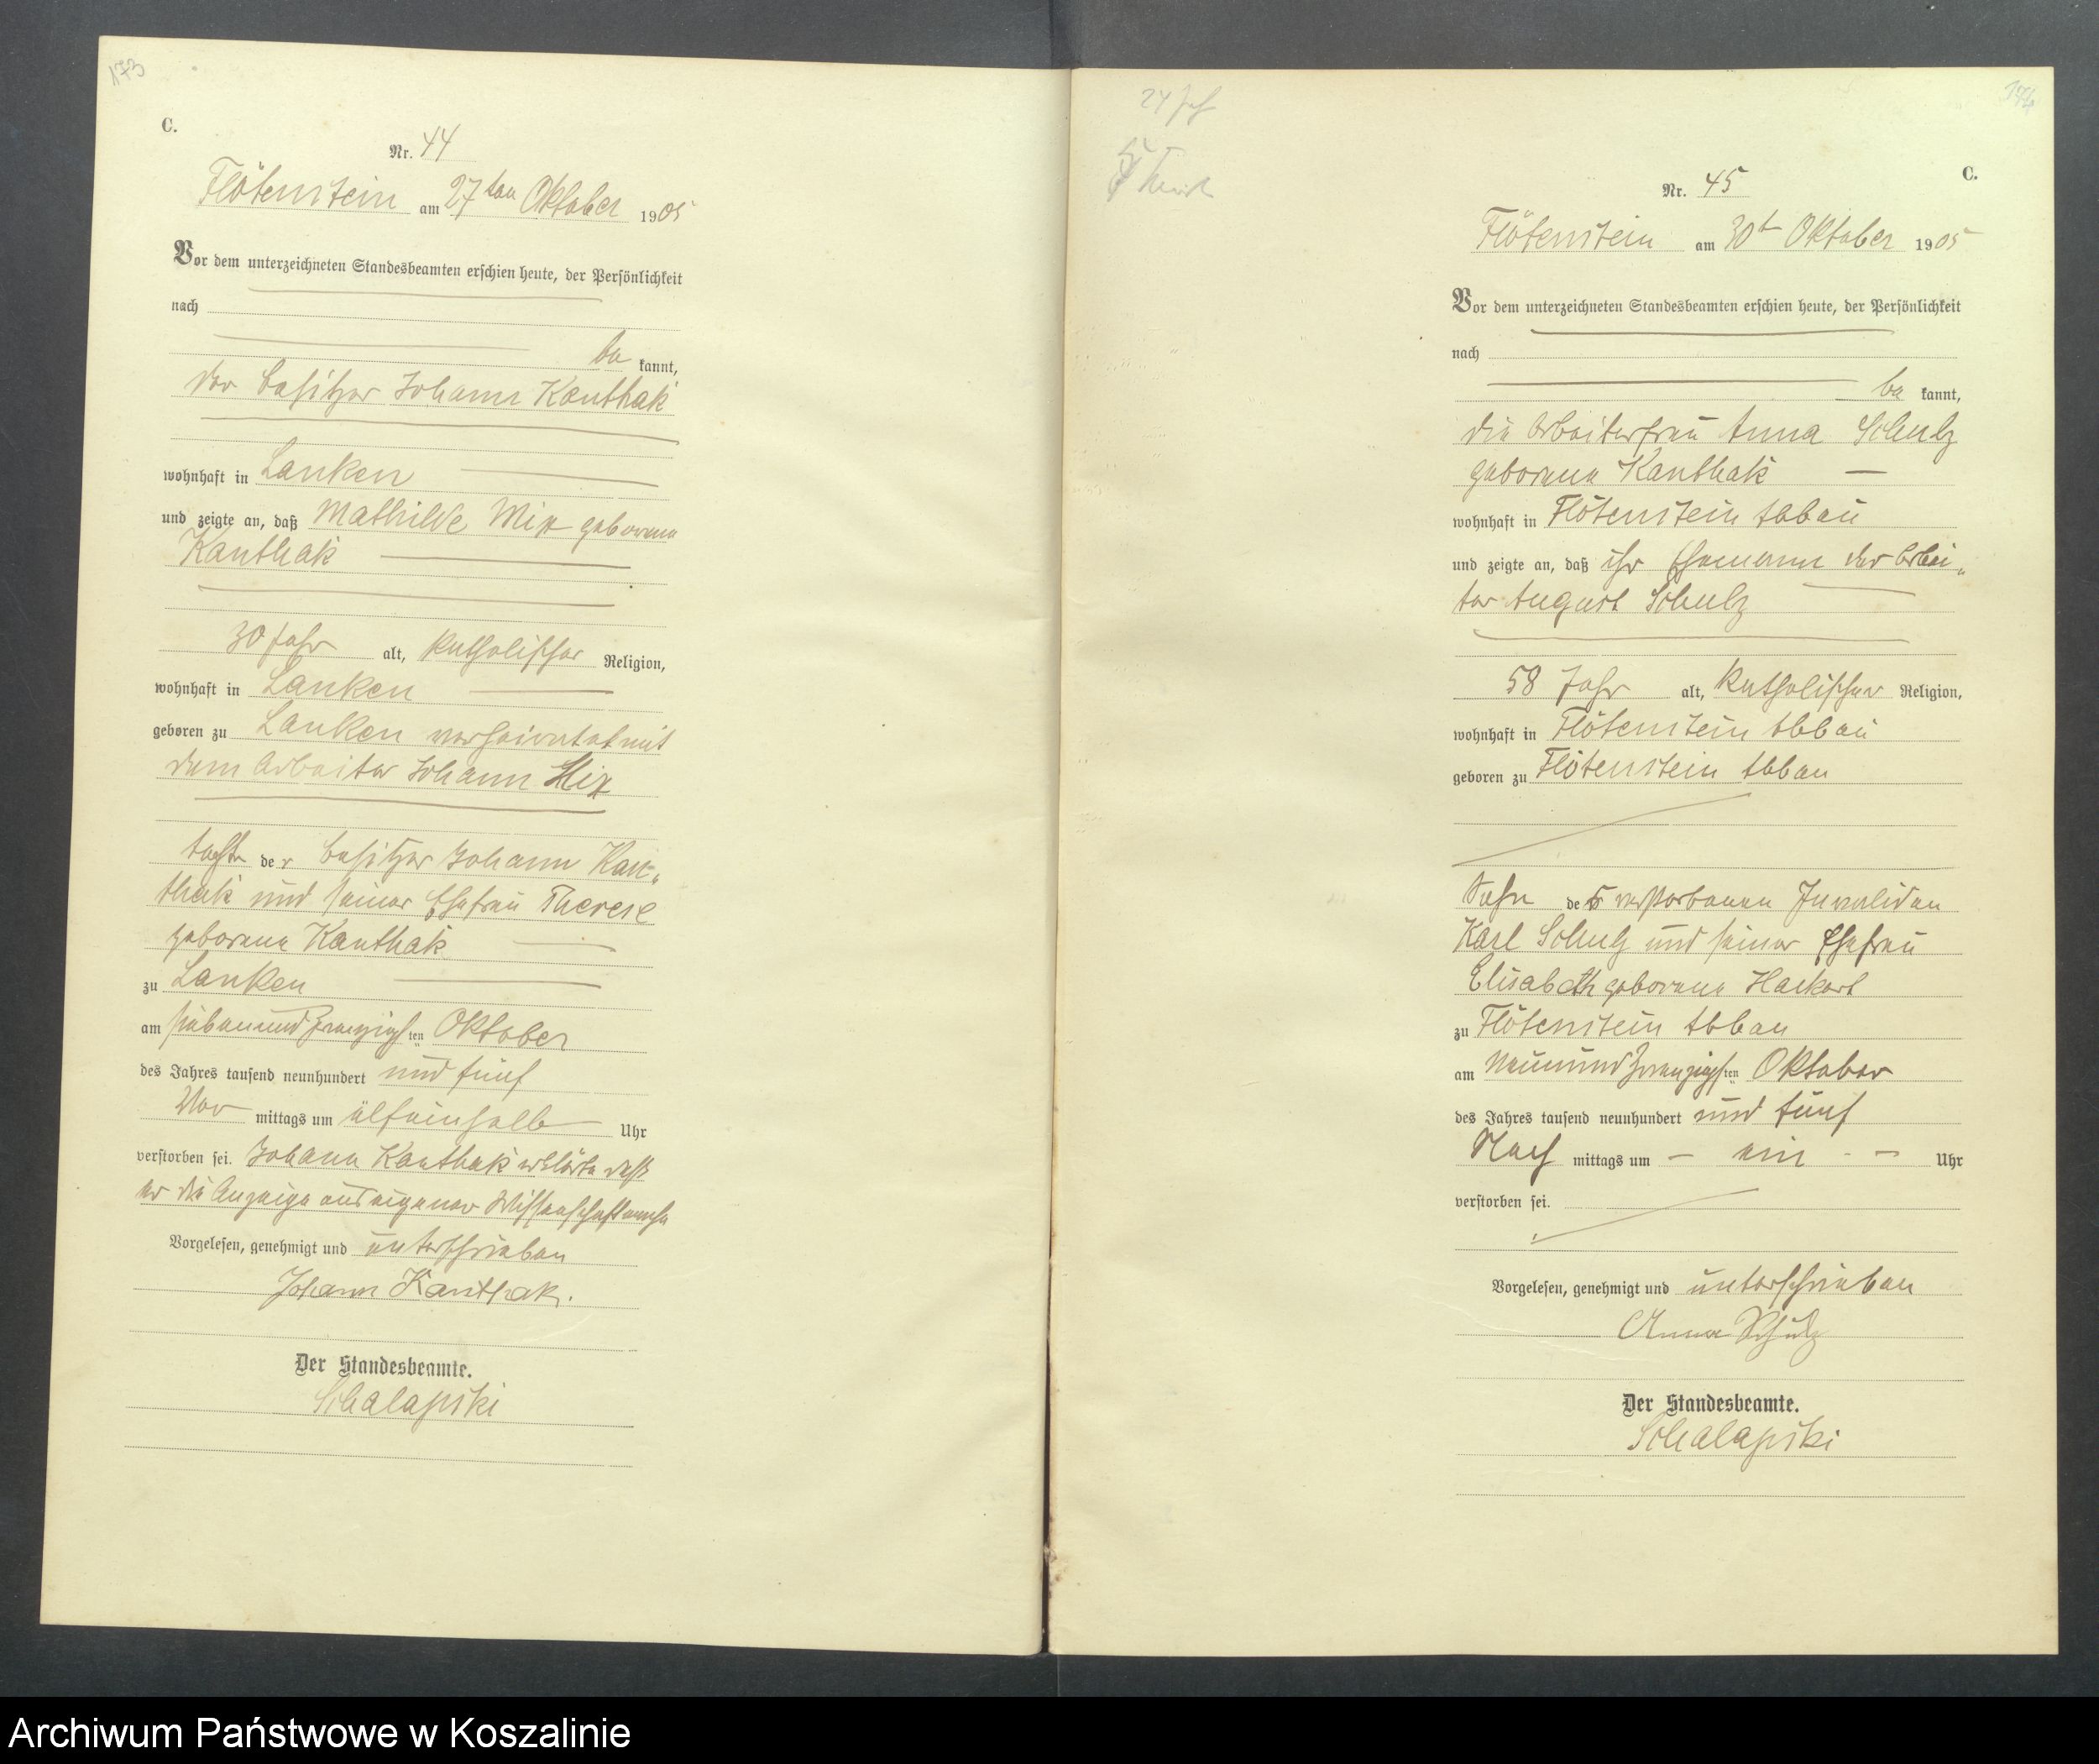 173
C.
Nr. 44
Flötenstein am 27ten Oktober 1905
Vor dem unterzeichneten Standesbeamten erschien heute, der Persönlichkeit
nach
be kannt,
der Besitzer Johann Kanthak
wohnhaft in Lanken
und zeigte an, daß Mathilde Mix geborene
Kanthak
30 Jahr alt, katholischer Religion,
wohnhaft in Lanken
geboren zu Lanken verheiratet mit
dem Arbeiter Johann Mix
Tochter der Besitzer Johann Kan„
thak und seiner Ehefrau Therese
geborene Kanthak
zu Lanken
am siebenundzwanzigsten Oktober
des Jahres tausend neunhundert und fünf
Vor mittags um elfeinhalb Uhr
verstorben sei. Johann Kanthak erklärte daß
er die Anzeige aus eigener Wissenschaft mache
Vorgelesen, genehmigt und unterschrieben
Johann Kanthak.
Der Standesbeamte.
Schalapski
24 Jah
174
C.
Nr. 45
Flötenstein am 30t Oktober 1905
Vor dem unterzeichneten Standesbeamten erschien heute, der Persönlichkeit
nach
be kannt,
die Arbeiterfrau Anna Schulz
geborene Kanthak
wohnhaft in Flötenstein Abbau
und zeigte an, daß ihr Ehemann der Arbei„
ter August Schulz
58 Jahr alt, katholischer Religion,
wohnhaft in Flötenstein Abbau
geboren zu Flötenstein Abbau
Sohn des verstorbenen Invaliden
Karl Schulz und seiner Ehefrau
Elisabeth geborene Hackert
zu Flötenstein Abbau
am Neunundzwanzigsten Oktober
des Jahres tausend neunhundert und fünf
Nach mittags um – ein – Uhr
verstorben sei.
Vorgelesen, genehmigt und unterschrieben
Anna Schulz
Der Standesbeamte.
Schalapski
Archiwum Państwowe w Koszalinie